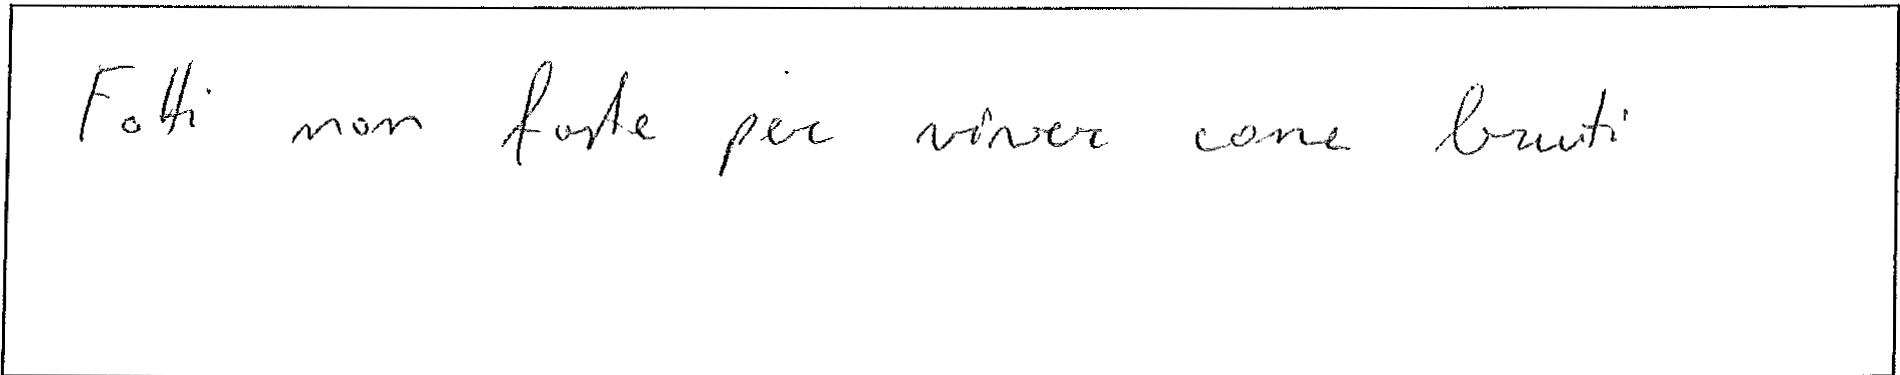 Fatti non foste per viver come bruti